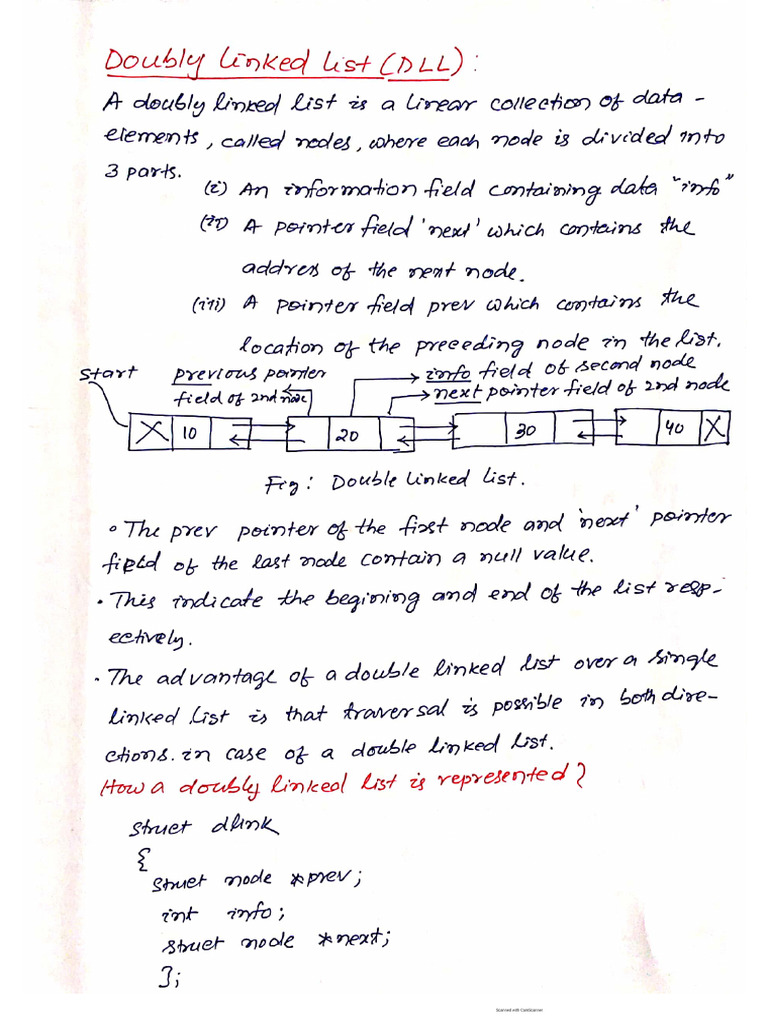 Doubly linked list (DLL) :
A doubly linked list is a linear collection of data -
elements, called nodes, where each node is divided into
3 parts.
(i) An information field containing data "info"
(ii) A pointer field 'next' which contains the
address of the next node.
(iii) A pointer field prev which contains the
location of the preceding node in the list.
start previous pointer field of 2nd node
info field of second node
next pointer field of 2nd node
X 10 20 30 40 X
Fig : Double Linked List.
• The prev pointer of the first node and 'next' pointer
field of the last node contain a null value.
• This indicate the begining and end of the list resp-
ectively.
• The advantage of a double linked list over a single
linked list is that traversal is possible in both dire-
ctions. in case of a double linked list.
How a doubly linked list is represented?
struct dlink
{
struct node *prev;
int info;
struct node *next;
};
Scanned with CamScanner